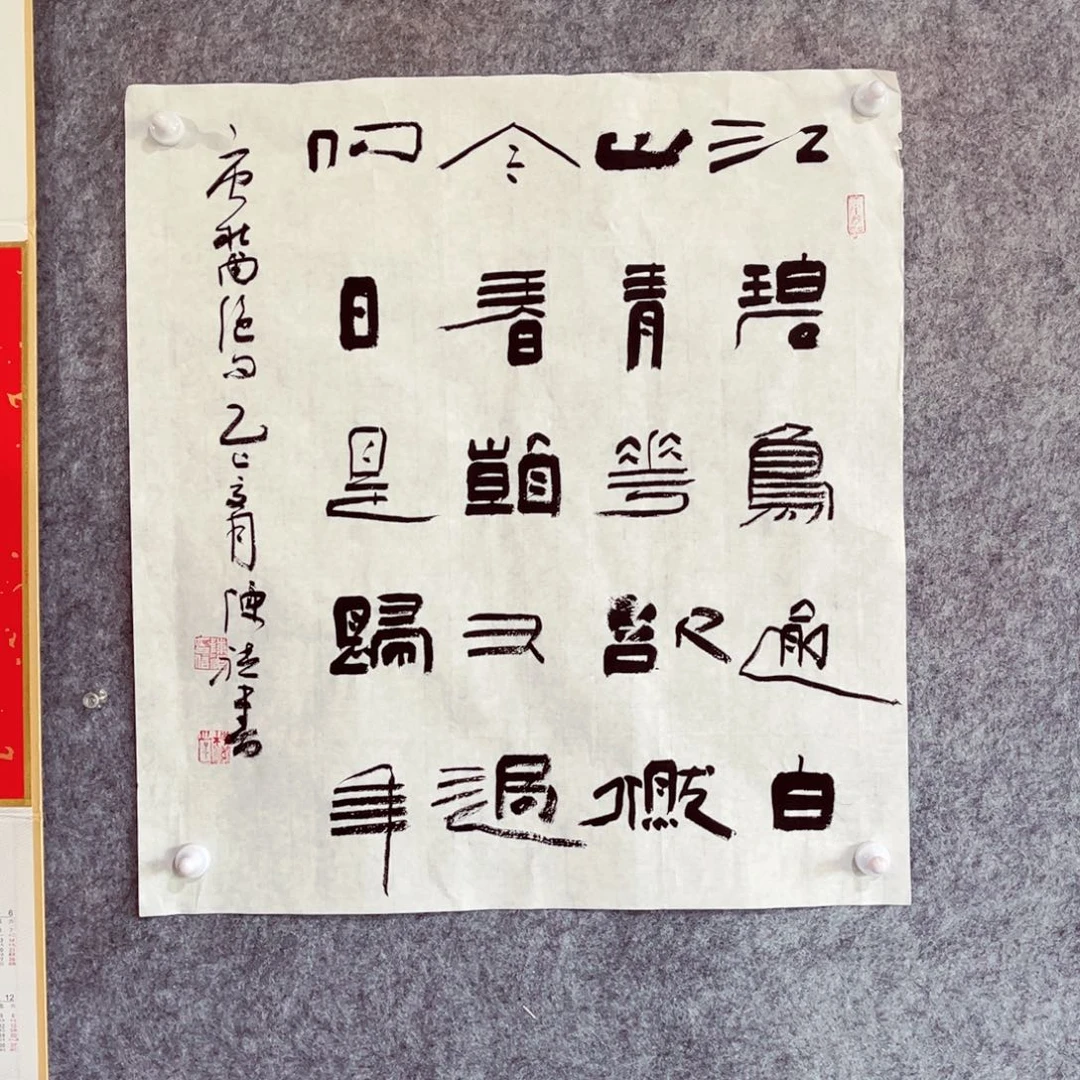 江碧鳥逾白
山青花欲燃
今春看又過
何日是歸年
唐杜甫絕句乙巳夏月陳書
6
12